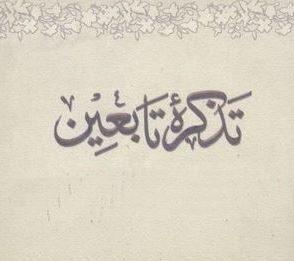 تذکرۂ تابعین